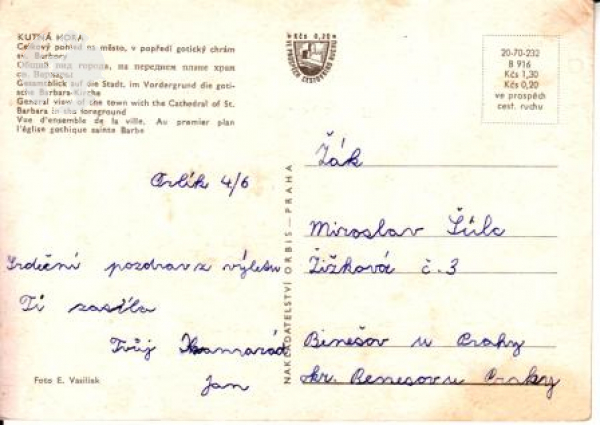 KUTNÁ HORA
Celkový pohled na město, v popředí gotický chrám
sv. Barbory
Общий вид города, на переднем плане храм
св. Варвары
Gesamtblick auf die Stadt, im Vordergrund die goti-
sche Barbara-Kirche
General view of the town with the Cathedral of St.
Barbara in the foreground
Vue d'ensemble de la ville. Au premier plan
l'église gothique sainte Barbe
Orlík 4/6
Srdečný pozdrav z výletu
Ti zasílá
Tvůj Kamarád
Jan
Foto E. Vasiliak
NAKLADATELSTVÍ ORBIS — PRAHA
Kčs 0,20
20-70-232
B 916
Kčs 1,30
Kčs 0,20
ve prospěch
cest. ruchu
Žák
Miroslav Šulc
Žižková č. 3
Benešov u Prahy
okr. Benešov u Prahy